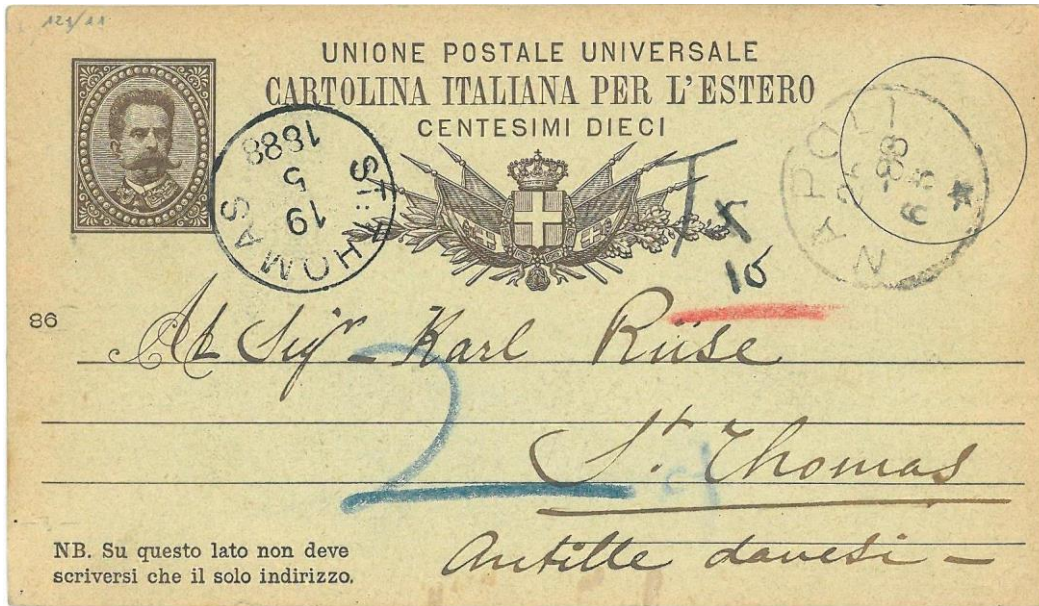 123/11
UNIONE POSTALE UNIVERSALE
CARTOLINA ITALIANA PER L'ESTERO
CENTESIMI DIECI
ST: THOMAS
19
5
1888
NAPOLI
88
T
15
86
Al Sigr Karl Riise
2
St. Thomas
Antille danesi –
NB. Su questo lato non deve
scriversi che il solo indirizzo.